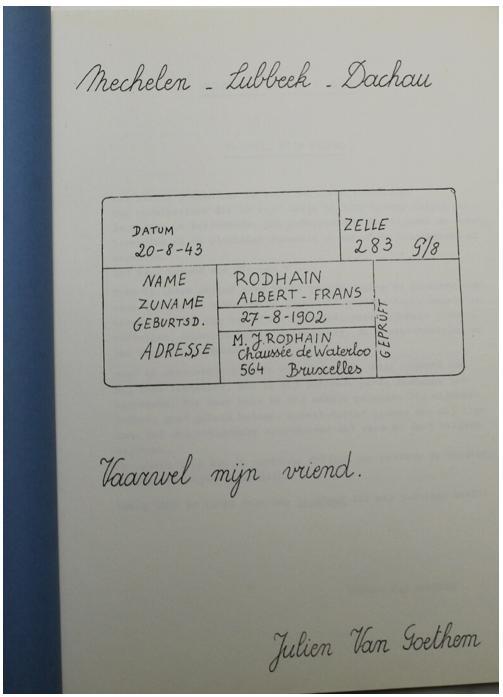 Mechelen - Lubbeek - Dachau
DATUM
20-8-43
ZELLE
283 G/8
NAME
ZUNAME
GEBURTSD.
ADRESSE
RODHAIN
ALBERT-FRANS
27-8-1902
M. J. RODHAIN
Chaussée de Waterloo
564 Bruxelles
GEPRÜFT
Vaarwel mijn vriend.
Julien Van Goethem